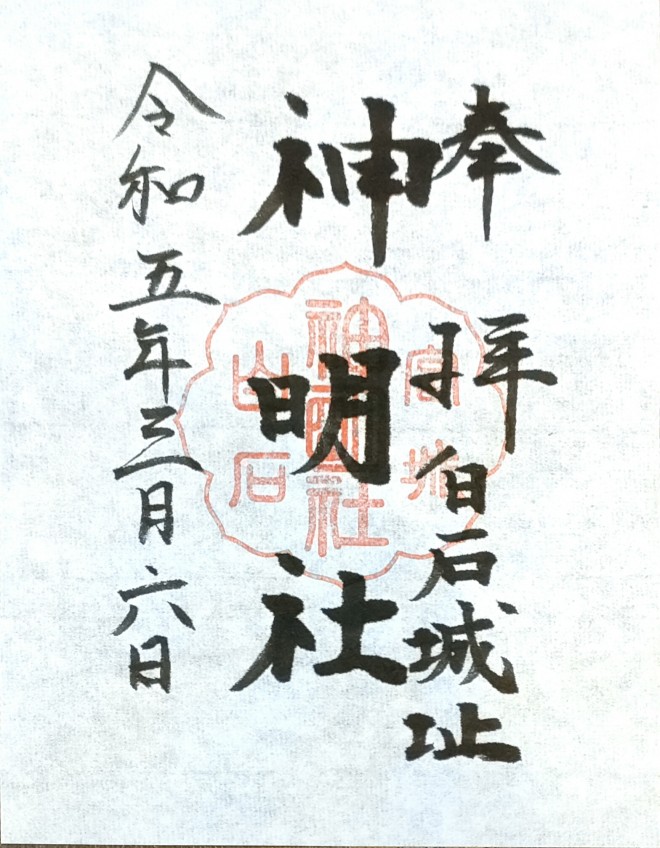 奉拝
白石城址
神明社
令和五年三月六日
宮城
神明社
白石